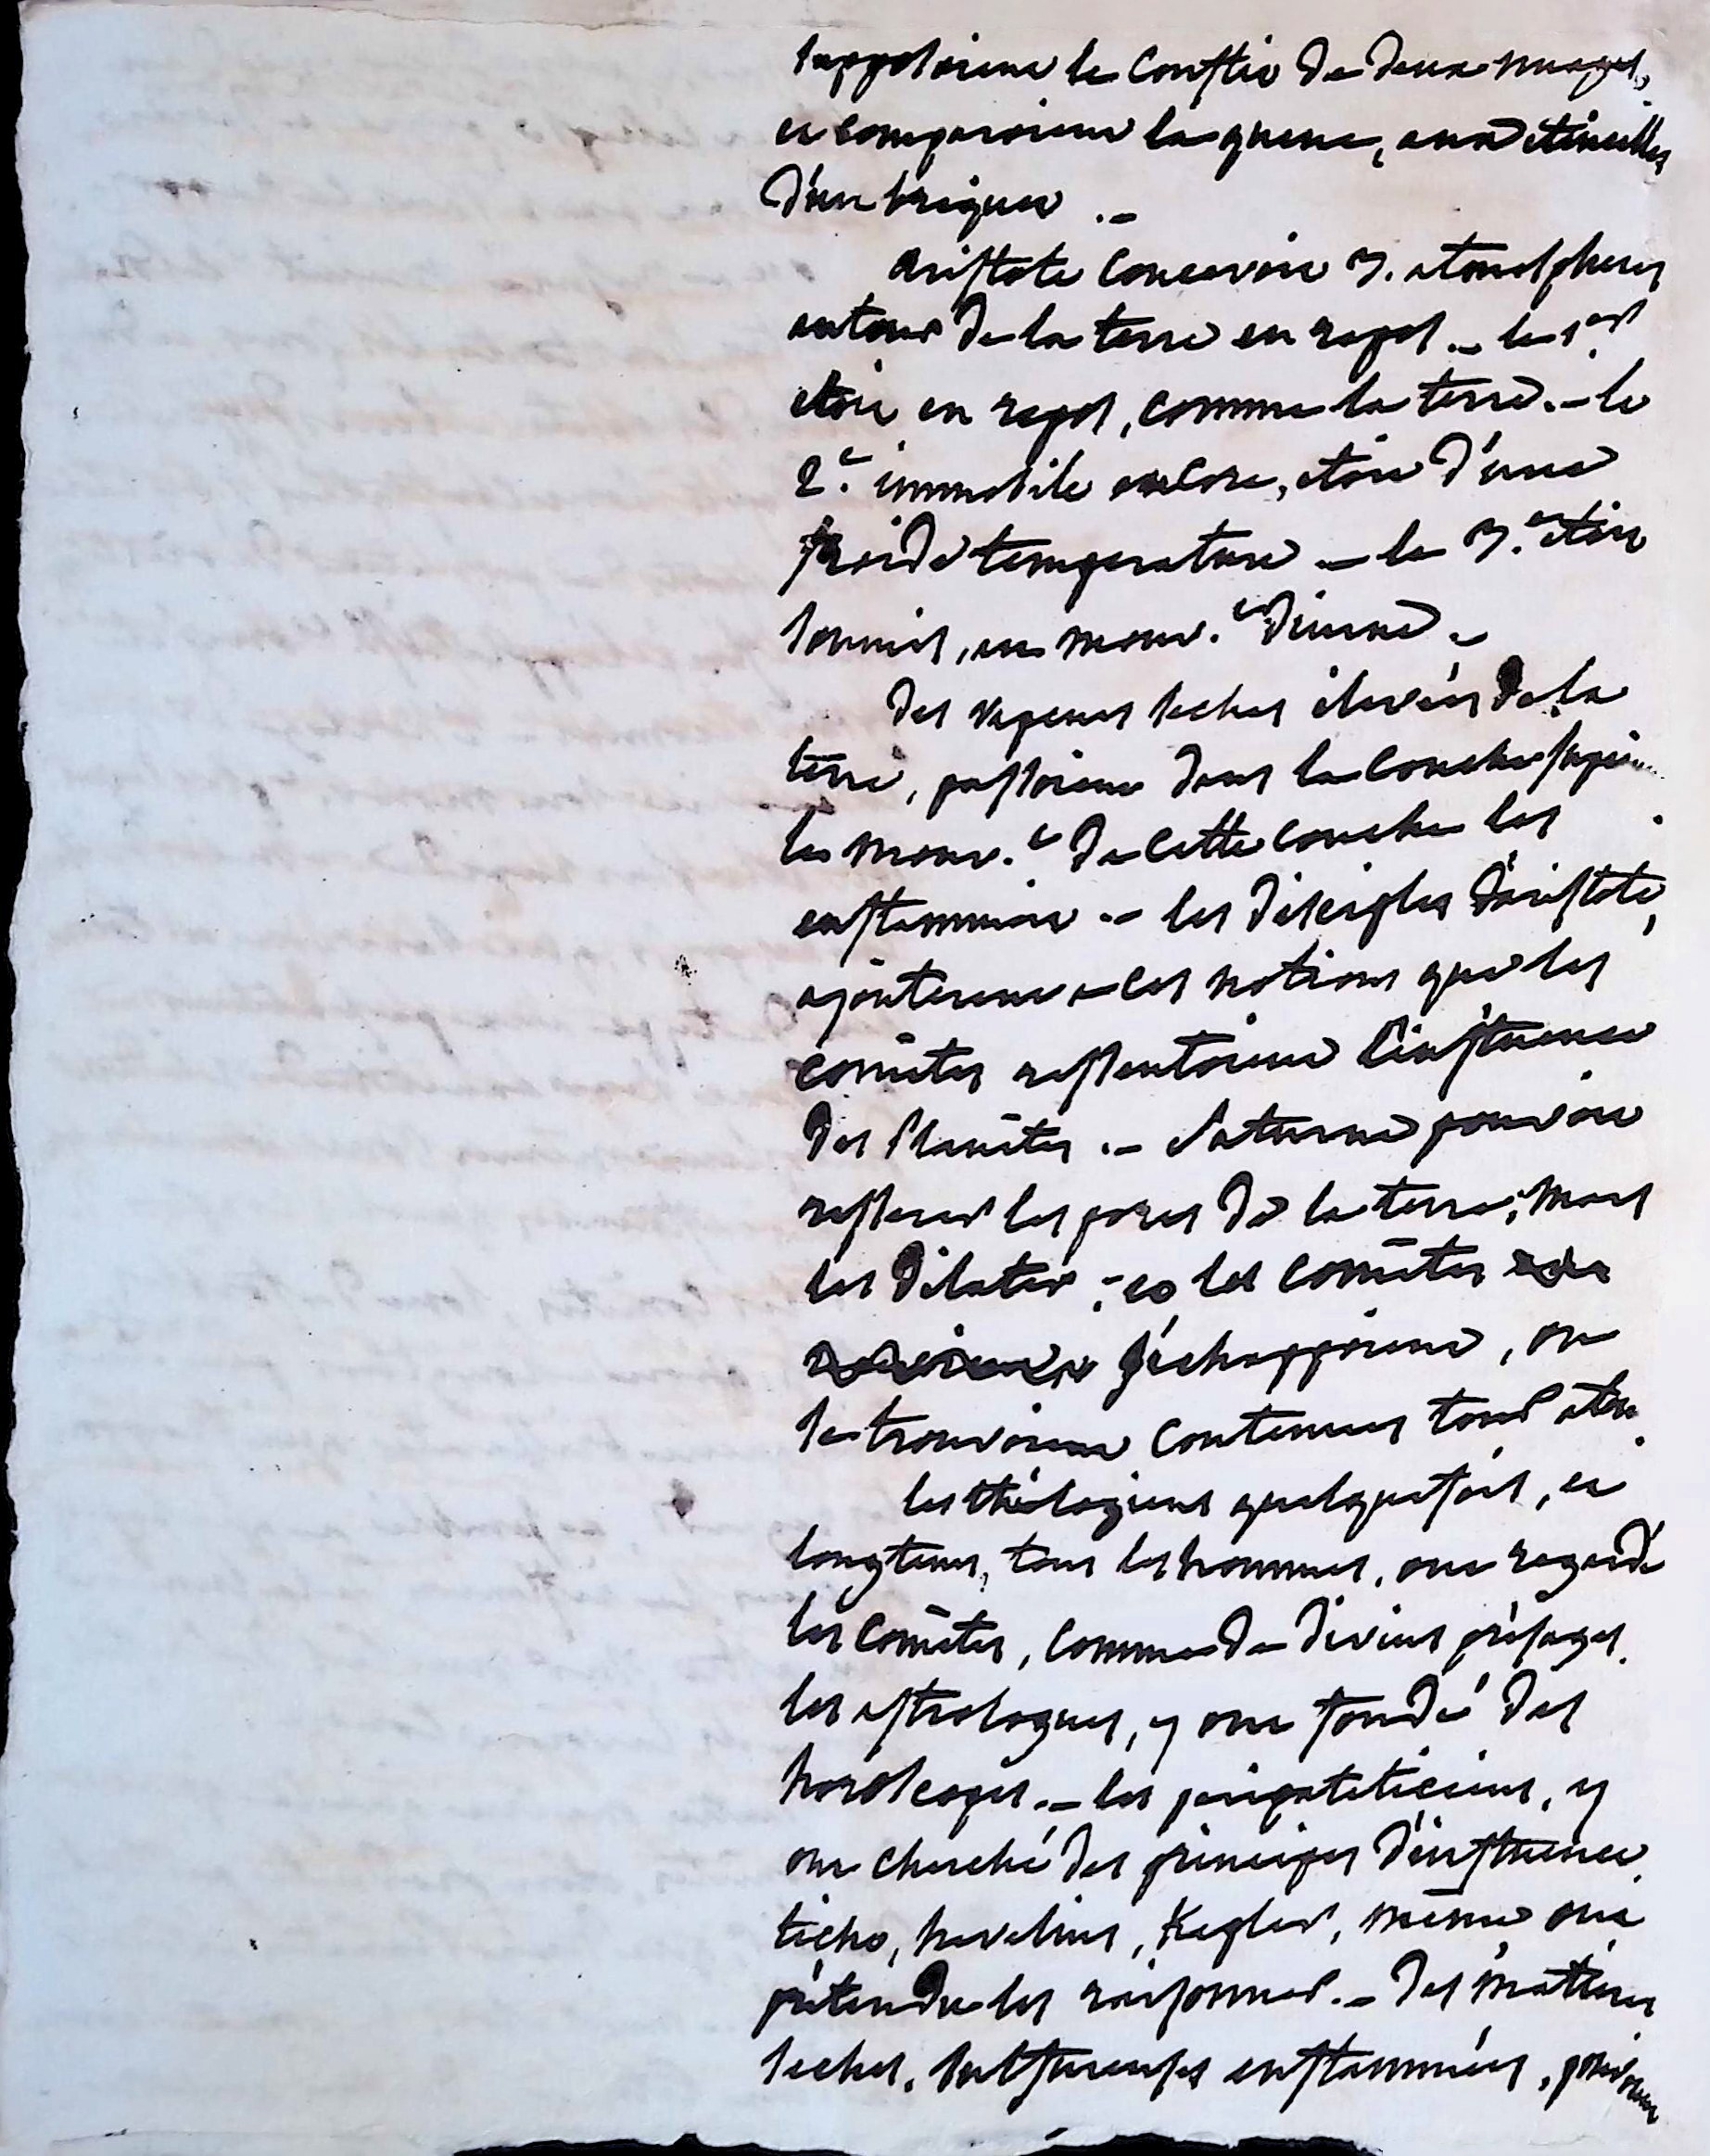 supposoient le conflit de deux nuages,
et comparoient la queue, aux etincelles
d'un briquet .-
aristote concevoit 3. atmospheres
autour de la terre en repos .- la 1ere
etoit en repos, comme la terre .- la
2.e immobile encore, etoit d'une
froide temperature .- la 3.e etoit
soumise, au mouv.t diurne .-
des vapeurs seches elevées de la
terre, passoient dans la couche
le mouv.t de cette couche les
enflammoit .- les disciples d'aristote,
ajouterent a ces notions que les
comêtes ressentoient l'influence
des Planêtes .- Saturne pouvoit
resserrer les pores de la terre; Mars
les dilater; et les comêtes
s'échappoient, ou
se trouvoient contenues tour a tour.
les théologiens quelquefois, et
longtems, tous les hommes, ont regardé
les comêtes, comme de divins présages.
les astrologues, y ont fondé des
horoscopes .- les péripatéticiens, y
ont cherché des principes d'influence.
ticho, hevelius, Kepler, même ont
prétendu les raisonner .- des matieres
seches, sulfureuses enflammées, pouvoient